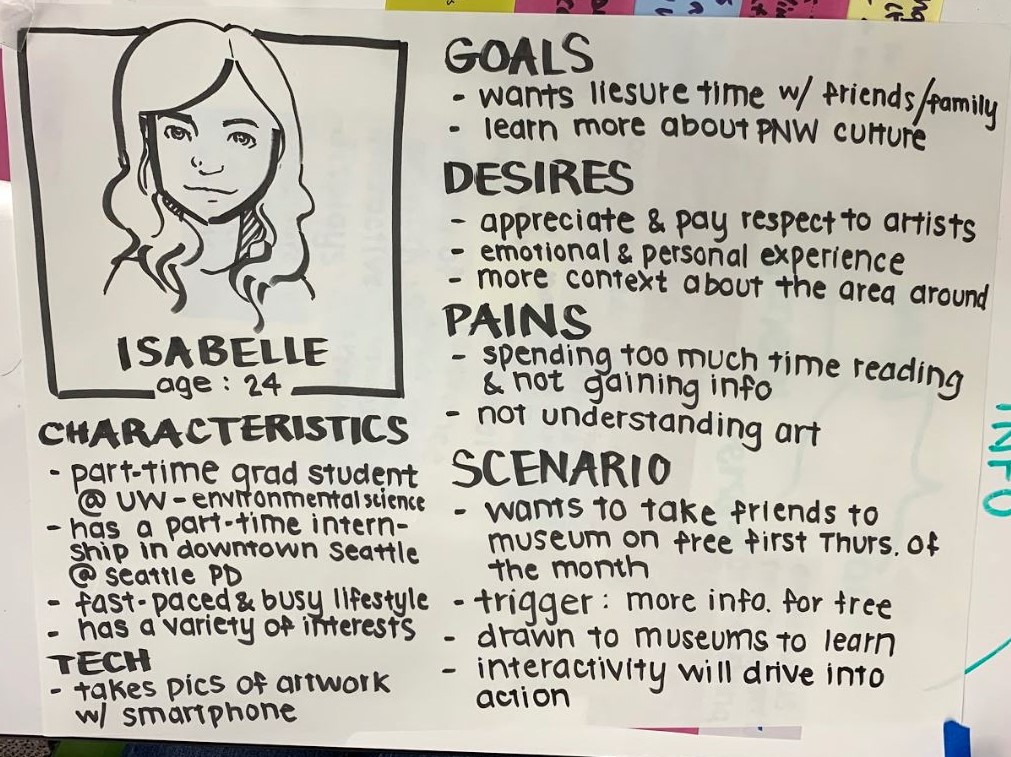 ISABELLE
age: 24
CHARACTERISTICS
- part-time grad student
@ UW - environmental science
- has a part-time intern-
ship in downtown Seattle
@ seattle PD
- fast-paced & busy lifestyle
- has a variety of interests
TECH
- takes pics of artwork
w/ smartphone
GOALS
- wants liesure time w/ friends/family
- learn more about PNW culture
DESIRES
- appreciate & pay respect to artists
- emotional & personal experience
- more context about the area around
PAINS
- spending too much time reading
& not gaining info
- not understanding art
SCENARIO
- wants to take friends to
museum on free first Thurs. of
the month
- trigger: more info. for free
- drawn to museums to learn
- interactivity will drive into
action
INFO